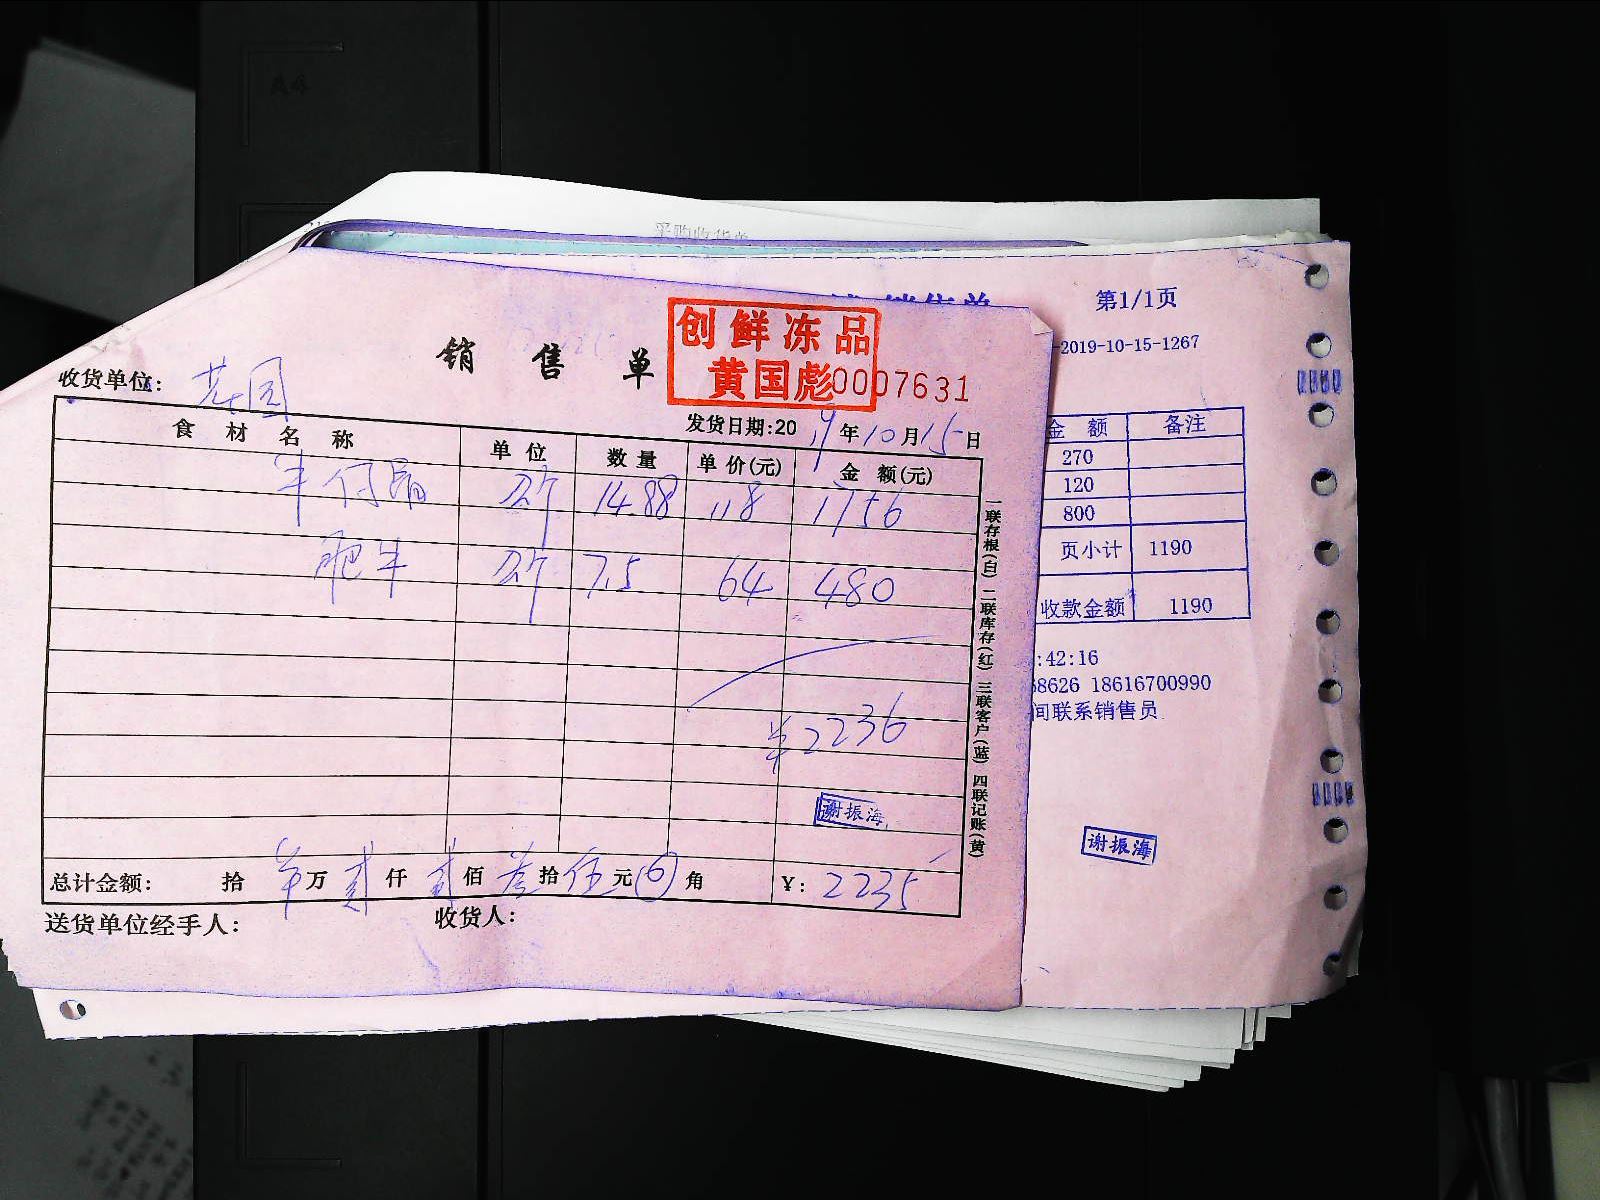 第1/1页
创鲜冻品
黄国彪
销售单
0007631
-2019-10-15-1267
收货单位: 花园
发货日期:2019年10月15日
食材名称 单位 数量 单价(元) 金额(元)
斤 14.88 118 1756
肥牛 斤 7.5 64 480
¥2236
谢振海
总计金额: 拾 万 贰仟 贰佰 叁拾 伍元 角 ¥: 2235
送货单位经手人: 收货人:
一联存根(白) 二联库存(红) 三联客户(蓝) 四联记账(黄)
金额 备注
270
120
800
页小计 1190
收款金额 1190
:42:16
8626 18616700990
间联系销售员
谢振海